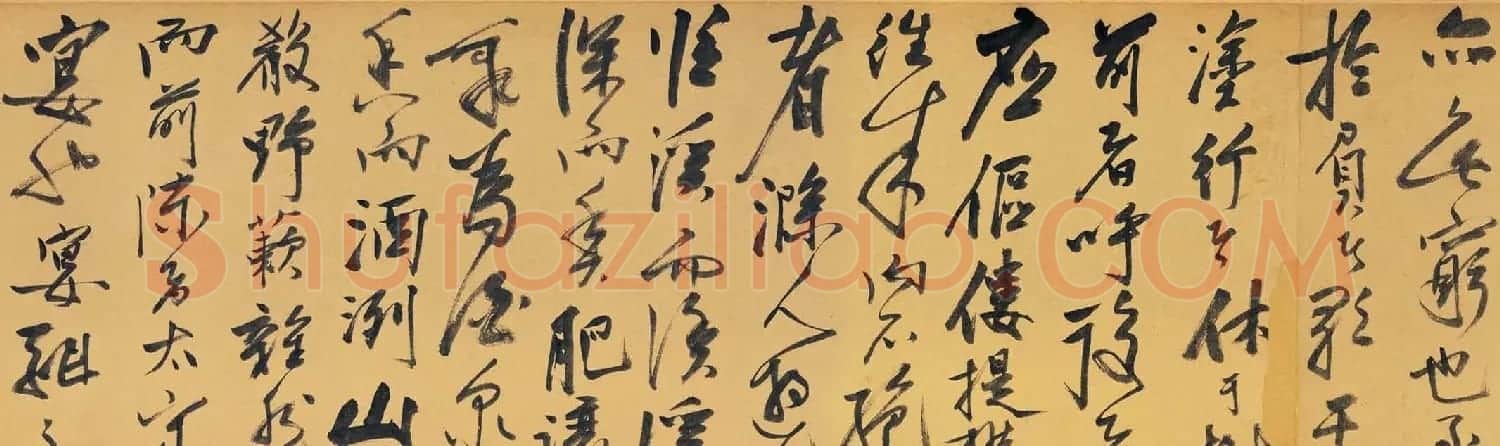 亦無窮也至
於負者歌于
塗行者休于樹
前者呼後者
應傴僂提攜
往来而不絕
者滁人遊
臨溪而漁溪
深而魚肥釀
泉為酒泉
香而酒洌山
殽野蔌雜然
而前陳者太守
宴也宴酣之
Shufaziliao.COM